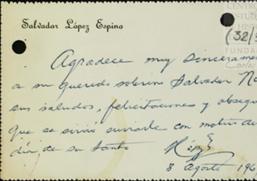 Salvador López Espino
(32/
Agradece muy sincerame
a su querido sobrino Salvador
sus saludos, felicitaciones y obsequ
que se sirvió enviarle con motivo de
día de su Santo
8 Agosto 196